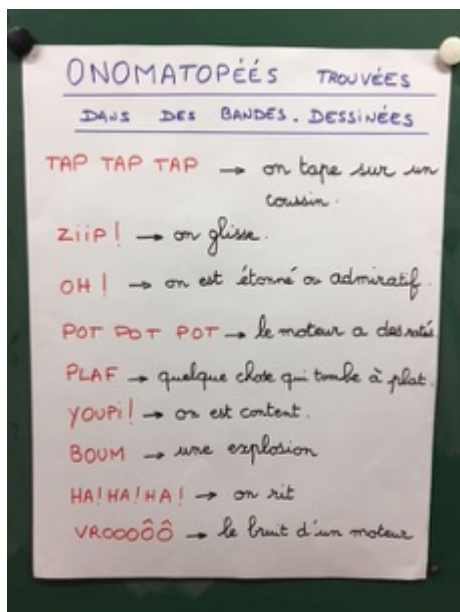 ONOMATOPÉÉS TROUVÉES
DANS DES BANDES.DESSINÉES
TAP TAP TAP → on tape sur un
coussin.
ZiiP! → on glisse.
OH! → on est étonné ou admiratif.
POT POT POT → le moteur a des ratés
PLAF → quelque chose qui tombe à plat.
YOUPi! → on est content.
BOUM → une explosion
HA!HA!HA! → on rit
VROOOÔÔ → le bruit d'un moteur